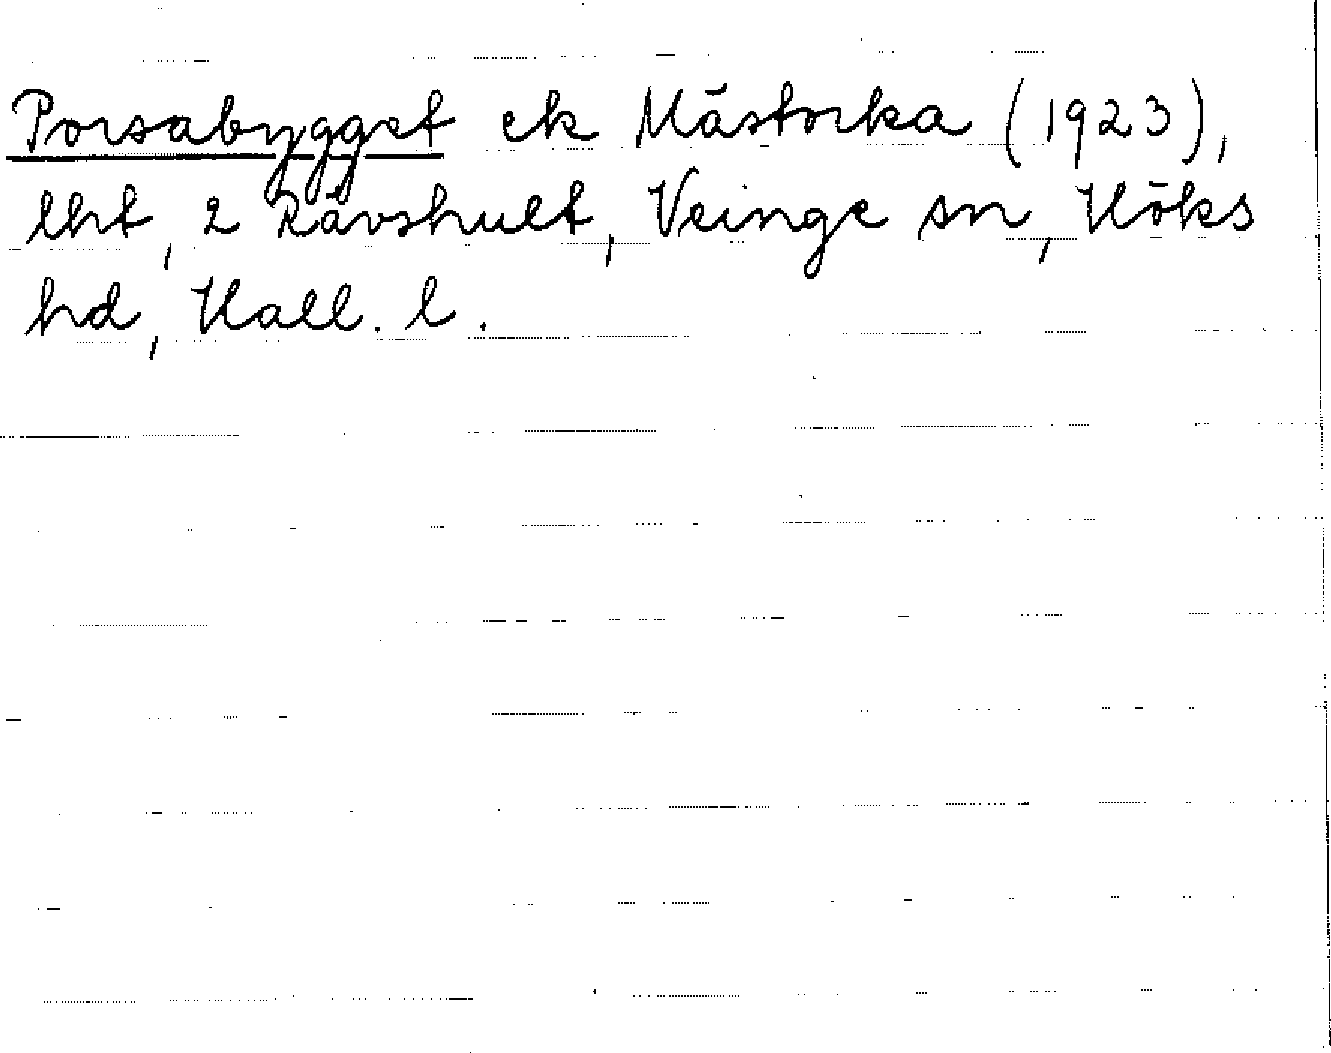 Porsabygget ek Mästocka (1923),
lht, 2 Rävshult, Veinge sn, Höks
hd, Hall. l.